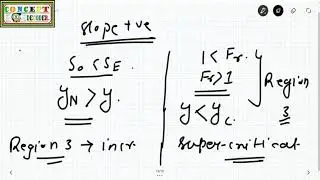 CONCEPT
DECODER
slope +ve
S₀ < S_E
y_N > y.
Region 3 → incr
1 < Fr.
Fr > 1
y < y_c.
Region
3
super-critical